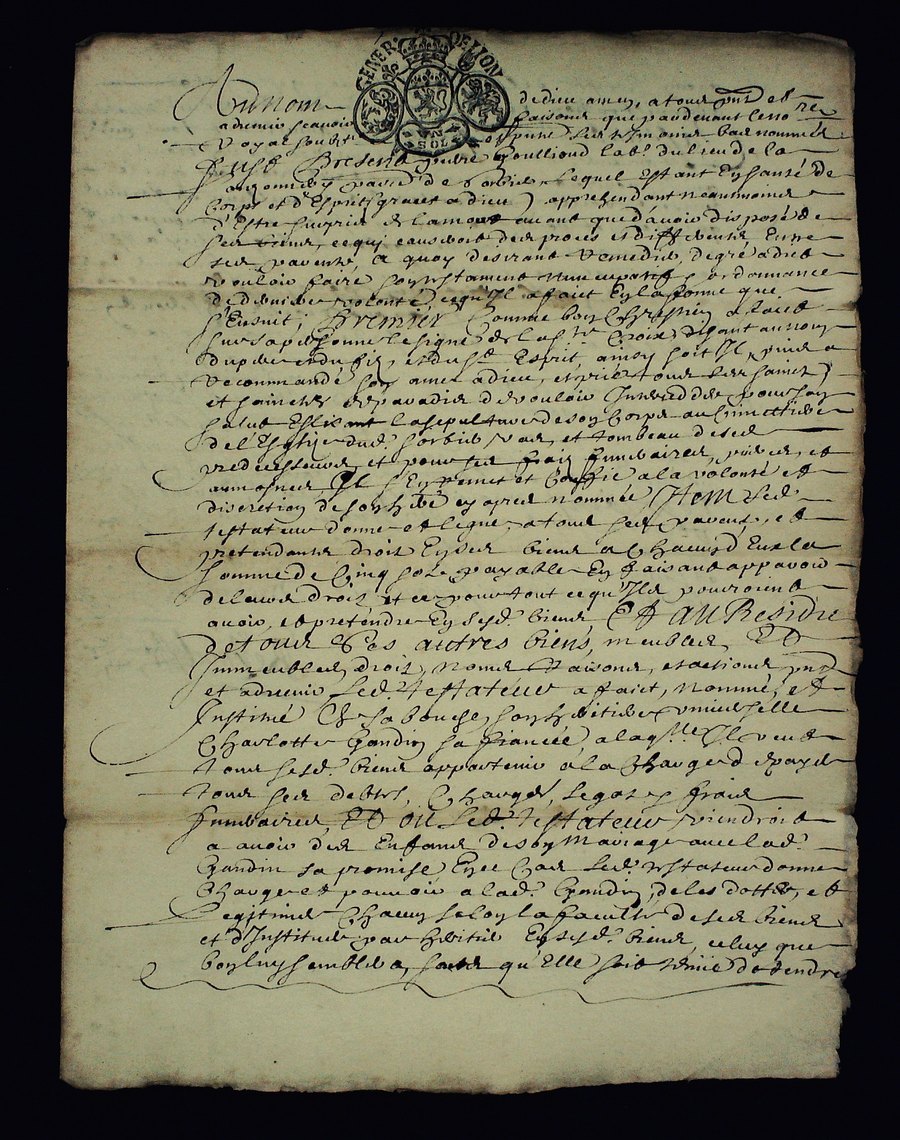 GENER. DE LYON
VN SOL
Au nom de dieu amen, a tous pnts et
a advenir scavoir faisons que pardevant le no.re
Royal soubz.
fust Present pierre Goullioud lab.r du lieu de la
de Sorbier, lequel Estant En santé de
Corps et d'Esprit (graces a dieu) apprehendant neantmoins
d'Estre surpris de la mort avant que d'avoir disposé de
ses biens, ce qui causeroit des proces et differents Entre
ses parents, a quoy desirant remedier, de gré a dict
vouloir faire son testament nuncupatif, ordonnance
de derniere volonté, ce qu'Il a faict En la forme que
s'Ensuit; Premier Comme bon Chrestien a faict
sur sa personne le signe de la ste Croix disant au nom
du pere et du fils, et du st Esprit, ainsy soit Il, puis a
recommandé son ame a dieu, et prié tous les saincts
et sainctes de paradis de vouloir Interceder pour son
salut Elisant la sepulture de son Corps au Cimettiere
de l'Esglize dud. Sorbier, et tombeau de ses
predecesseurs, et pour ses frais funeraires, prieres, et
aumosnes, Il s'En remet et Confie a la volonté et
discretion de son h.ere cy apres nommée Item Led.
testateur donne et legue a tous ses parents, et
pretendants droit En ses biens a Chacun d'Eux la
somme de Cinq solz payable En faisant apparoir
de leurs droits et ce pour tout ce qu'Ils pourroient
avoir, et pretendre En sesd. biens Et AU Residu
de tous ses autres biens, meubles, ET
Immeubles, droits, noms, Raisons, et actions pnts
et advenir Led. testateur a faict, nommé, et
Institué de sa bouche, son heritiere universelle
Charlotte Gondin sa fiancée, a laq.lle Il veut
tous sesd. biens appartenir a la Charge de payer
tous ses debtes, Charges, legats, frais
funeraires, ET OU Led. testateur viendroit
a avoir des Enfans de son mariage avec lad.
Gondin sa promise En ce Cas Led. testateur donne
Charge et pouvoir a lad. Gondin, de les dotter, et
legitimer Chacun selon la faculté de ses biens
et d'Instituer par heritier En sesd. biens, celuy que
bon luy semblera, sans qu'Elle soit tenüe de rendre